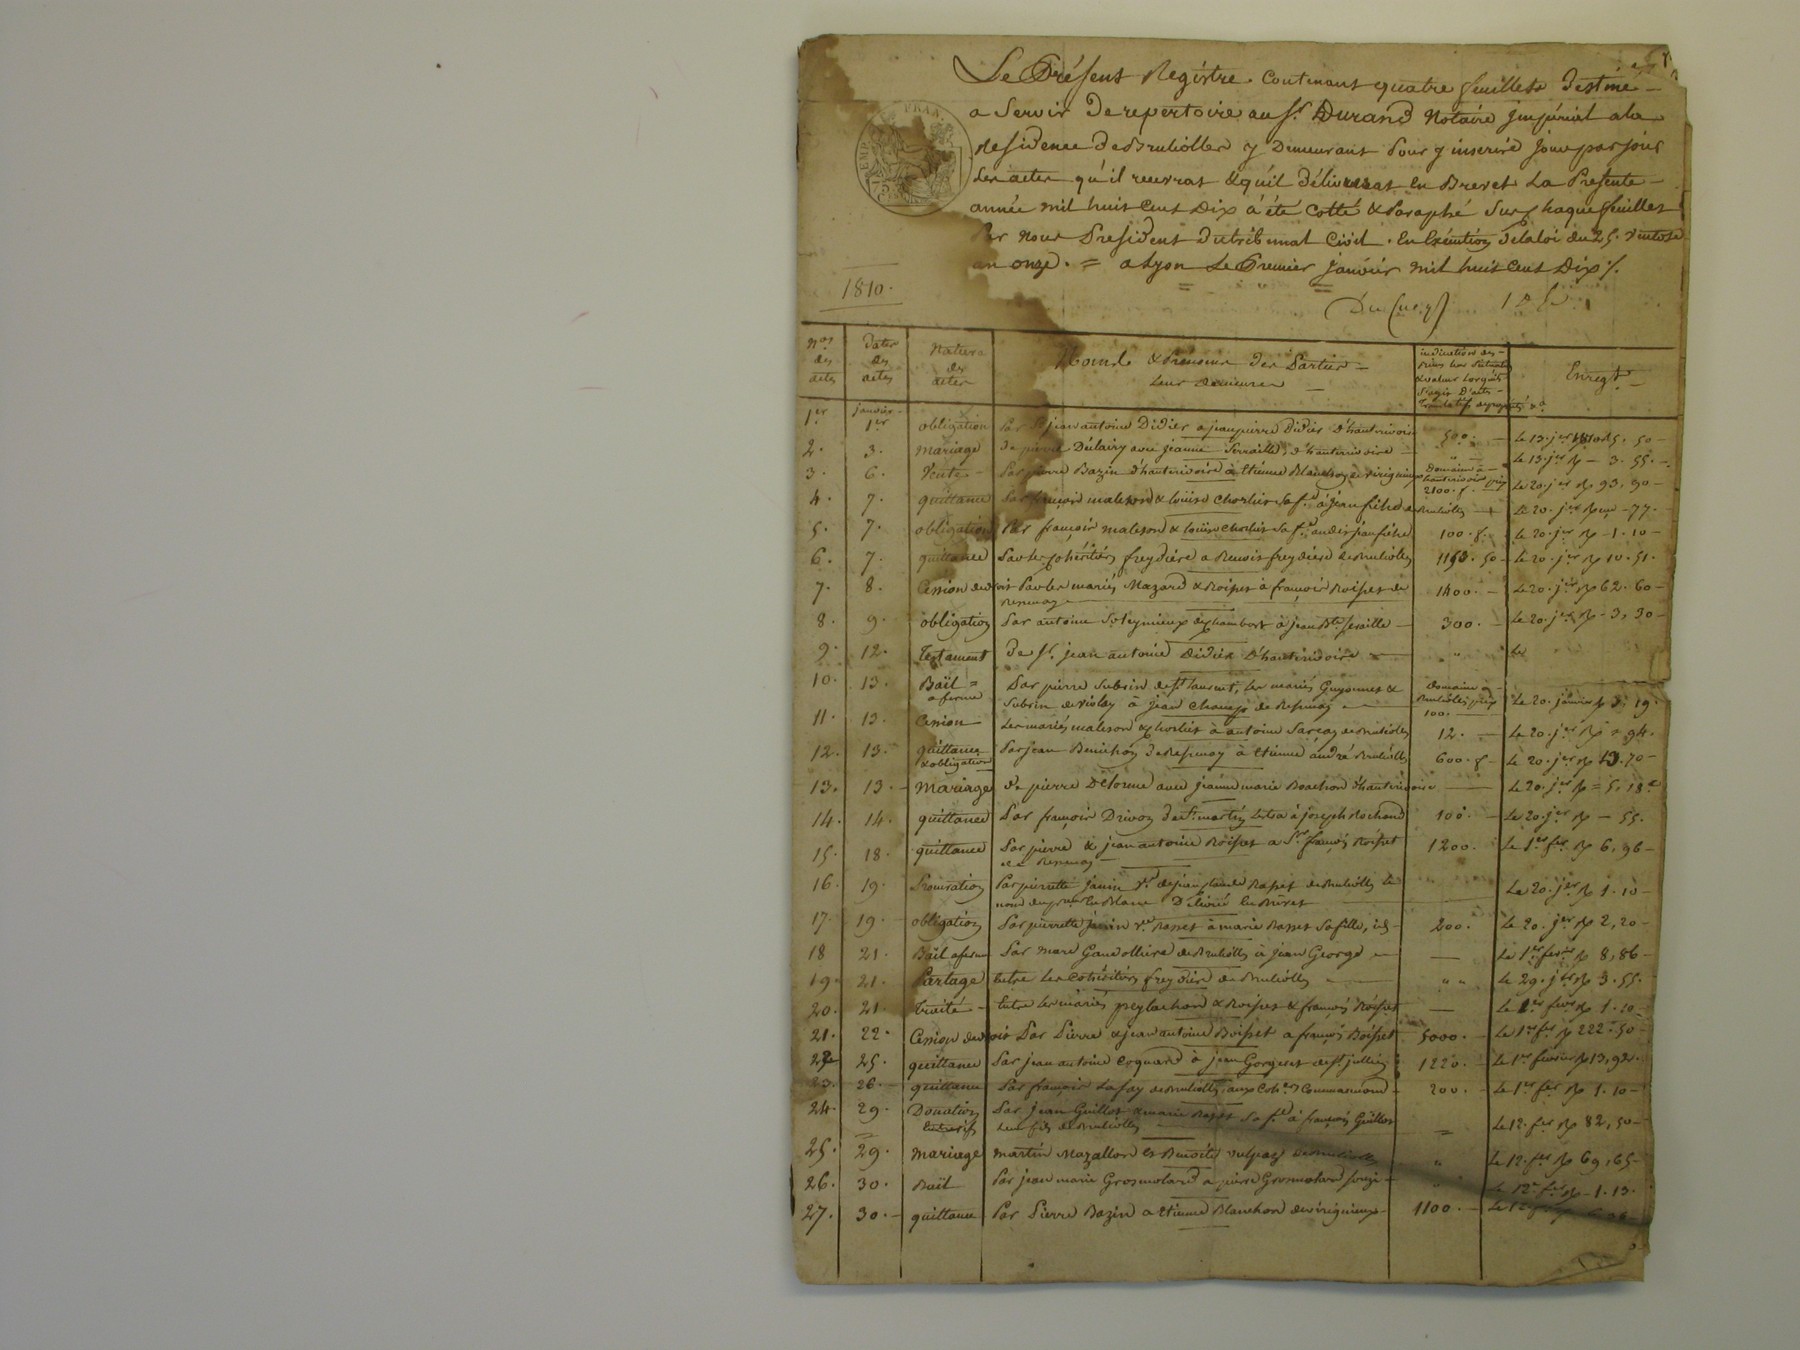 Le Présent Registre. Contenant quatre feuillets destiné
a servir de repertoire au Sr. Durand Notaire jmpérial a la
residence de Brullolles y Demeurant Pour y inserire jour par jour
Les actes qu'il recevrat & qu'il délivrerat En Brevet La Presente
année mil huit Cent Dix à été Cotté & Paraphé Sur Chaque feuillet
Par Nous President du tribunal Civil. En Exécution de la loi du 25. Ventose
an onze. = a Lyon Le Premier janvier mil huit Cent Dix /.
FRAN.
EMP.
75
CENTIMES
1810.
Nos des actes
Dates des actes
Nature des actes
Noms & Prenoms Des Parties
Leur demeure
Enregt.
1er janvier 1er obligation Par Sr jean antoine Didier a jean pierre Didier D'hauterivoire 500.
2. 3. Mariage De pierre Délairy avec jeanne Serraille, d'hauterivoire Le 13. jer Rp 3. 55.
3. 6. Vente Par pierre Bazin d'hauterivoire à Etienne Blanchon de virigneux Domaine a hauterivoire prix 2100. f. Le 20. jer Rp 93, 90
4. 7. quittance Par françois maleson & louise Chorlier sa fe à jean fiche de Brullolles Le 20. jer Rp 77.
5. 7. obligation Par françois maleson & louise Chorlier sa fe au dit jean fiche 100. f. Le 20. jer Rp 1. 10
6. 7. quittance Par les Cohéritiers freydière a Benoit freydière de Brullolles 1150. 50 Le 20. jer Rp 10. 51.
7. 8. Cession de droit Par les mariés Mazard & Boisset à françois Boisset de 1400. Le 20. jer Rp 62. 60
8. 9. obligation Par antoine St eymieux de Chambost à jean Bte seraille 300. Le 20. jer Rp 3, 30
9. 12. Testament De Sr. jean antoine Didier D'hauterivoire " Le
10. 13. Bail a ferme Par pierre Subrin de St laurent, les mariés Guyonnet & Domaine à Brullolles prix
Subrin de violay à jean Champ de 100. Le 20. janvier Rp 3, 19.
11. 13. Cession Les mariés maleson & Chorlier à antoine de Brullolles 12. Le 20. jer Rp " 94.
12. 13. quittance & obligation Par jean à Etienne andré Brullolles 600. f Le 20. jer Rp 13. 70
13. 13. Mariage De pierre Délorme avec jeanne marie d'hauterivoire Le 20. jer Rp = 5. 18
14. 14. quittance Par françois Drivon de St martin à joseph Rochand 100. Le 20. jer Rp 55.
15. 18. quittance Par pierre & jean antoine Boisset a Sr françois Boisset 1200. Le 1er fer Rp 6, 96
16. 19. Procuration Par pierrette janin ve de jean claude Rasset de Brullolles Le
nom du En Blanc Délivré En Brevet Le 20. jer Rp 1. 10
17. 19. obligation Par pierrette janin ve Rasset à marie Rasset sa fille, id 200. Le 20. jer Rp 2, 20
18 21. Bail a ferme Par Marc Gaudolliere de Brullolles à jean George Le 1er Rp 8, 86
19. 21. Partage Entre Les Cohéritiers freydière de Brullolles " " Le 29. jer Rp 3. 55.
20. 21. Traité Entre les mariés peylachon & Boisset & françois Boisset Le 1er Rp 1. 10
21. 22. Cession de droit Par Pierre & jean antoine Boisset a françois Boisset 5000. Le 1er fer Rp 222. 50
22 25. quittance Par jean antoine Coquard à jean de St jullien 1220. Le 1er fevrier Rp 13, 92.
23. 26. quittance Par françois de Brullolles, aux Cohers 200. Le 1er fer Rp 1. 10
24. 29. Donation Entrevifs Par jean Guillot & marie Rasset sa fe à françois Guillot
Leur fils de Brullolles Le 12. fer Rp 82, 50
25. 29. Mariage Martin Mazallon & Benoite vulpaz de Brullolles " Le 12. fer Rp 69, 65
26. 30. Bail Par jean marie Grosmolard a pierre Grosmolard Le 12 fer Rp 1. 13.
27. 30. quittance Par Pierre Bazin a Etienne Blanchon de virigneux 1100.